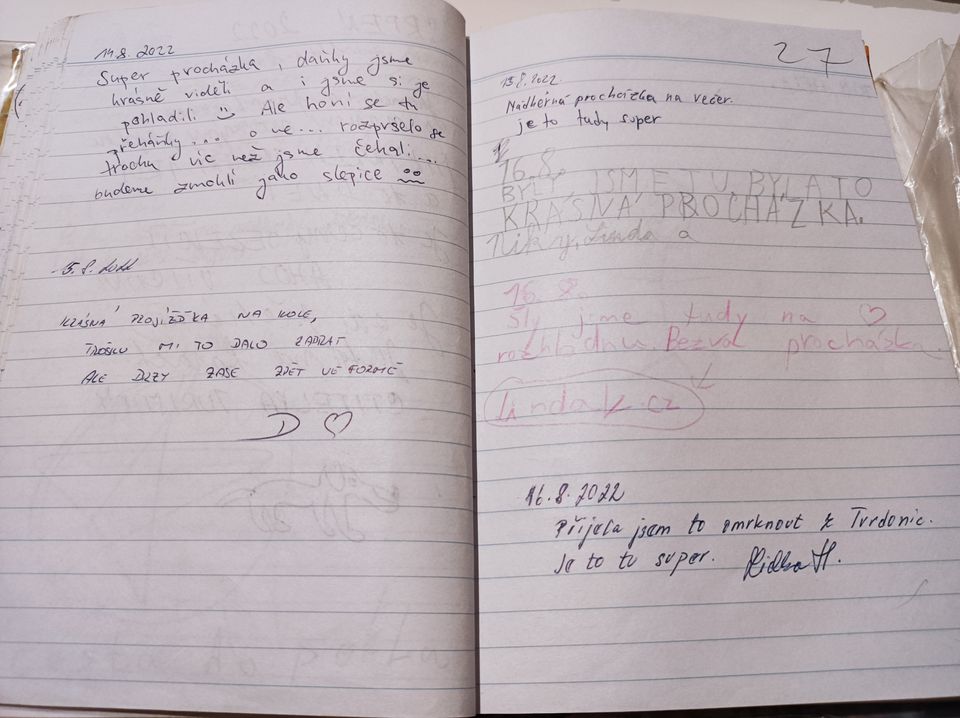 14.8. 2022
Super procházka, daňky jsme
krásně viděli a i jsme si je
pohladili Ale honí se tu
přeháňky... o ne... rozpršelo se
trochu víc než jsme čekali...
budeme zmoklí jako slepice
15.8. 2022
KRÁSNÁ PROJÍŽĎKA NA KOLE,
TROŠKU MI TO DALO ZABRAT
ALE BRZY ZASE ZPĚT VE FORMĚ
D ♡
27
15.8.2022.
Nádherná procházka na večer.
je to tudy super
16.8.
BYLY JSME TU BYLA TO
KRÁSNÁ PROCHÁZKA.
Niky, Linda a
16.8.
Šly jsme tudy na ♡
rozhlednu. Bezva procházka.
linda k.cz
16.8.2022
Přijela jsem to omrknout z Tvrdonic.
Je to tu super. H.